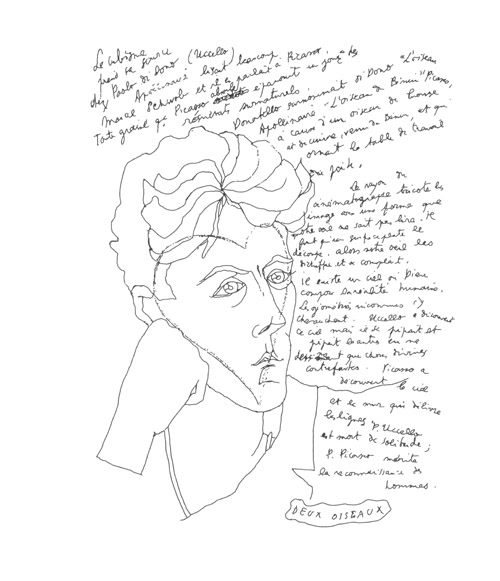 Le cubisme
prend sa source
chez Paolo di Dono (Uccello)
Apollinaire lisait beaucoup
Marcel Schwob et il en parlait à Picasso.
Tout graine que Picasso épanouit un jour des
roseraies surnaturels.
Donatello surnommait di Dono "L'oiseau"
Apollinaire "L'oiseau du Bénin" Picasso,
à cause d'un oiseau de
et de cuivre, venu du Bénin, et qui
ornait la table de travail
du poète.
Le rayon du
cinématographe tricote les
images en une forme que
notre œil ne sait pas lire. Il
faut qu'un
découpe. alors notre œil les
et complète.
Il existe un ciel où Dieu
la réalité humaine.
Les géomètres inconnus s'y
cherchent. Uccello a découvert
ce ciel mais il se pipait et
pipait les autres en ne
que choses divines
contrefaites. Picasso a
découvert le ciel
et le mur qui délivre
les lignes P. Uccello
est mort de solitude ;
P. Picasso mérite
la reconnaissance des
hommes.
DEUX OISEAUX